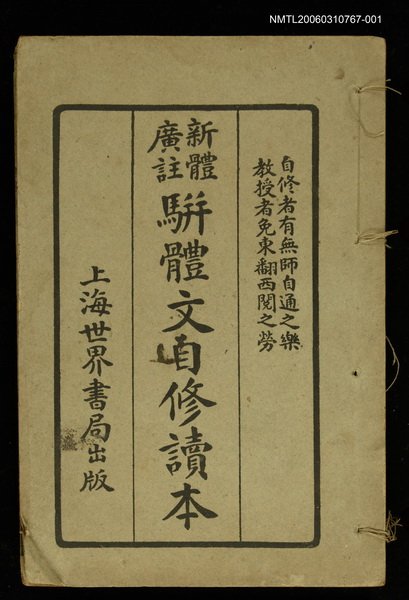 NMTL20060310767-001
自修者有無師自通之樂
教授者免東翻西閱之勞
新體
廣註
駢體文自修讀本
上海世界書局出版